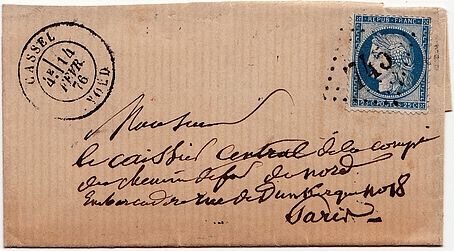 CASSEL
4E 14
FEVR
76
NORD
REPUB. FRANC.
25 POSTES 25C
Monsieur
le caissier central de la comp
du chemin de fer du nord
Embarcadère rue de Dunkerque no 18
Paris